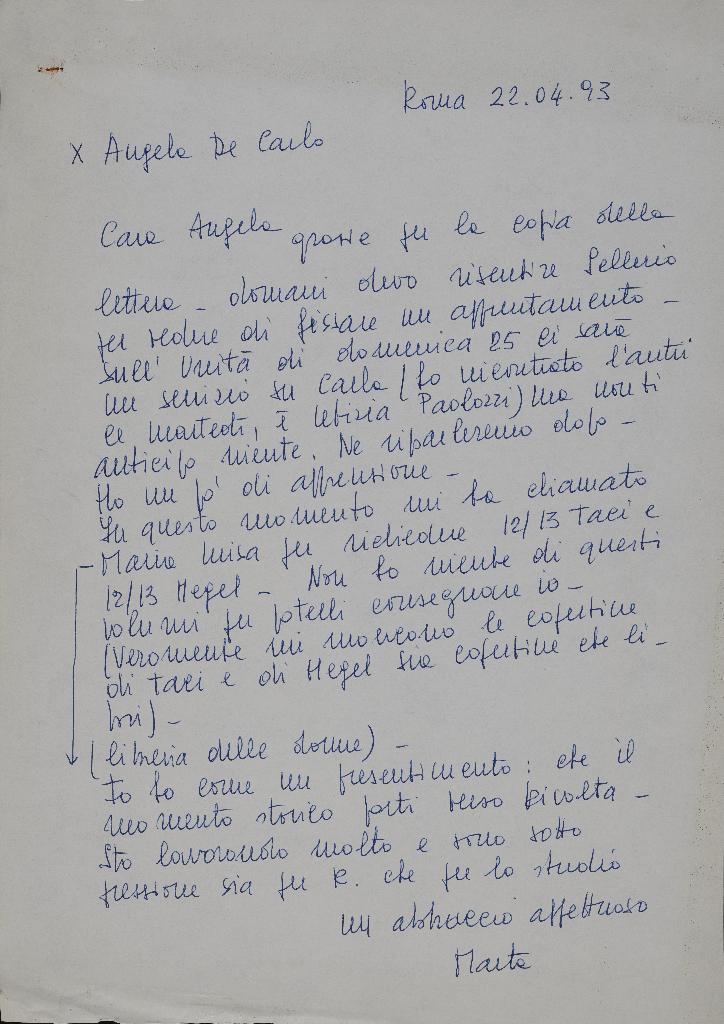 Roma 22.04.93
X Angela De Carlo
Cara Angela grazie per la copia della
lettera - domani devo risentire Sellerio
per vedere di fissare un appuntamento -
sull'Unità di domenica 25 ci sarà
un servizio su Carla (ho incontrato l'autri
ce martedì, è Letizia Paolozzi) ma non ti
anticipo niente. Ne riparleremo dopo -
Ho un po' di apprensione -
In questo momento mi ha chiamato
- Maria Luisa per richiedere 12/13 Taci e
12/13 Hegel - Non ho niente di questi
volumi per poterli consegnare io -
(Veramente mi mancano le copertine
di Taci e di Hegel sia copertine che li -
bri) -
(libreria delle donne) -
Io ho come un presentimento: che il
momento storico porti verso Rivolta -
Sto lavorando molto e sono sotto
pressione sia per R. che per lo studio
un abbraccio affettuoso
Marta